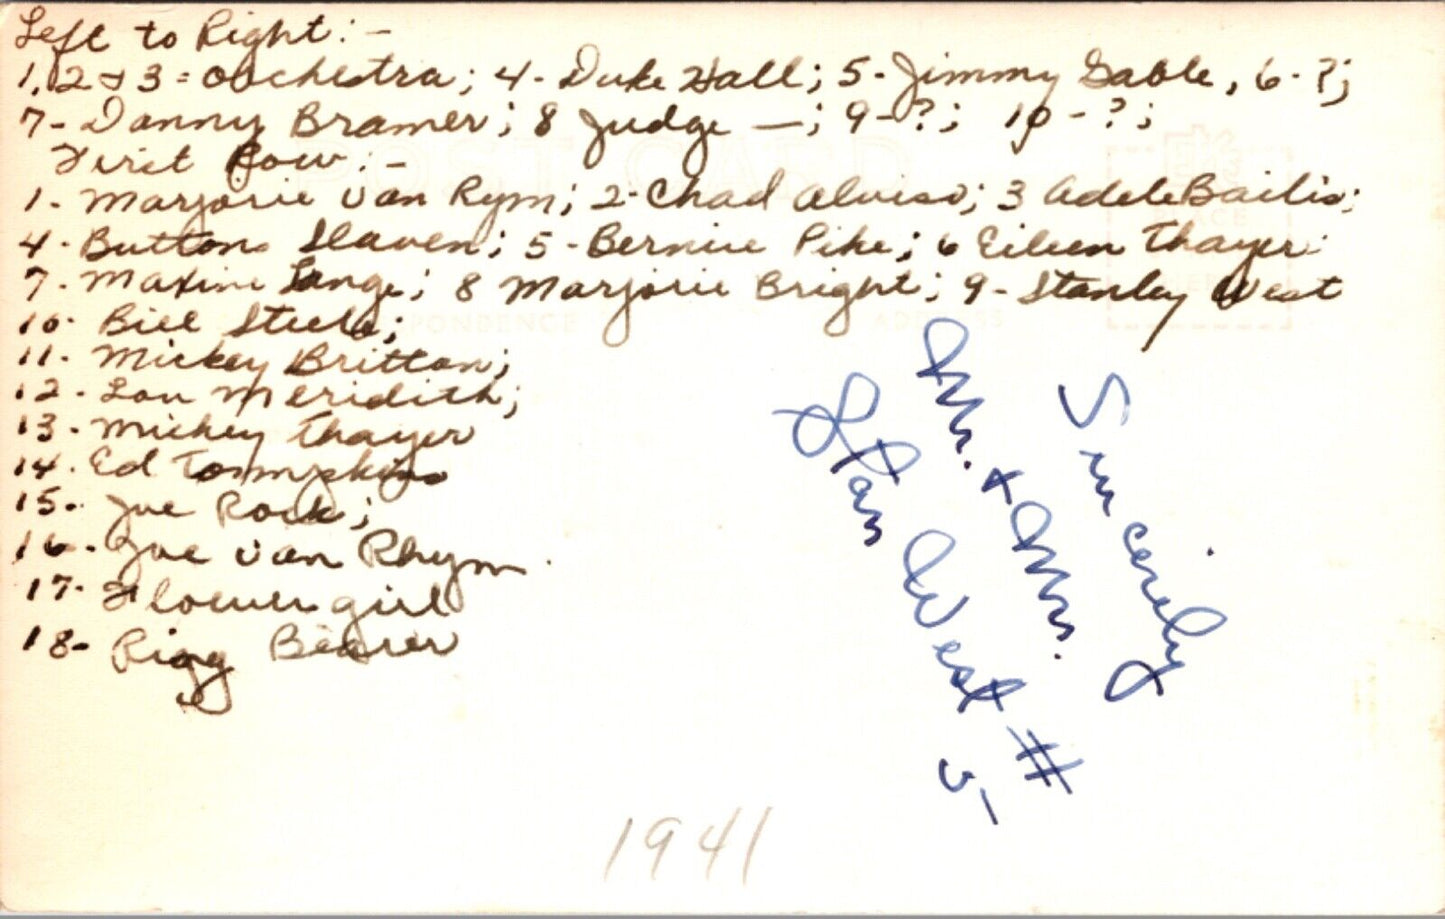 Left to Right: -
1, 2 & 3 = orchestra; 4 - Duke Hall; 5 - Jimmy Gable, 6 - ?;
7 - Danny Bramer; 8 Judge —; 9 - ?; 10 - ?;
First Row: -
1. Marjorie Van Rym; 2 - Chad Alviso; 3 Adele Bailis;
4 - Buttons Slaven; 5 - Bernie Pike; 6 Eileen Thayer
7. Maxine Lange; 8 Marjorie Bright; 9 - Stanley West
10. Bill Steele;
11. Mickey Britton;
12. Lou Meridith;
13. Mickey Thayer
14. Ed Tommpkins
15. Joe Rock;
16. Joe Van Rhym
17. Flower girl
18 - Ring Bearer
Sincerely
Mr. & Mrs.
Stan West #
5-
1941
POST CARD
PLACE
HERE
CORRESPONDENCE
ADDRESS